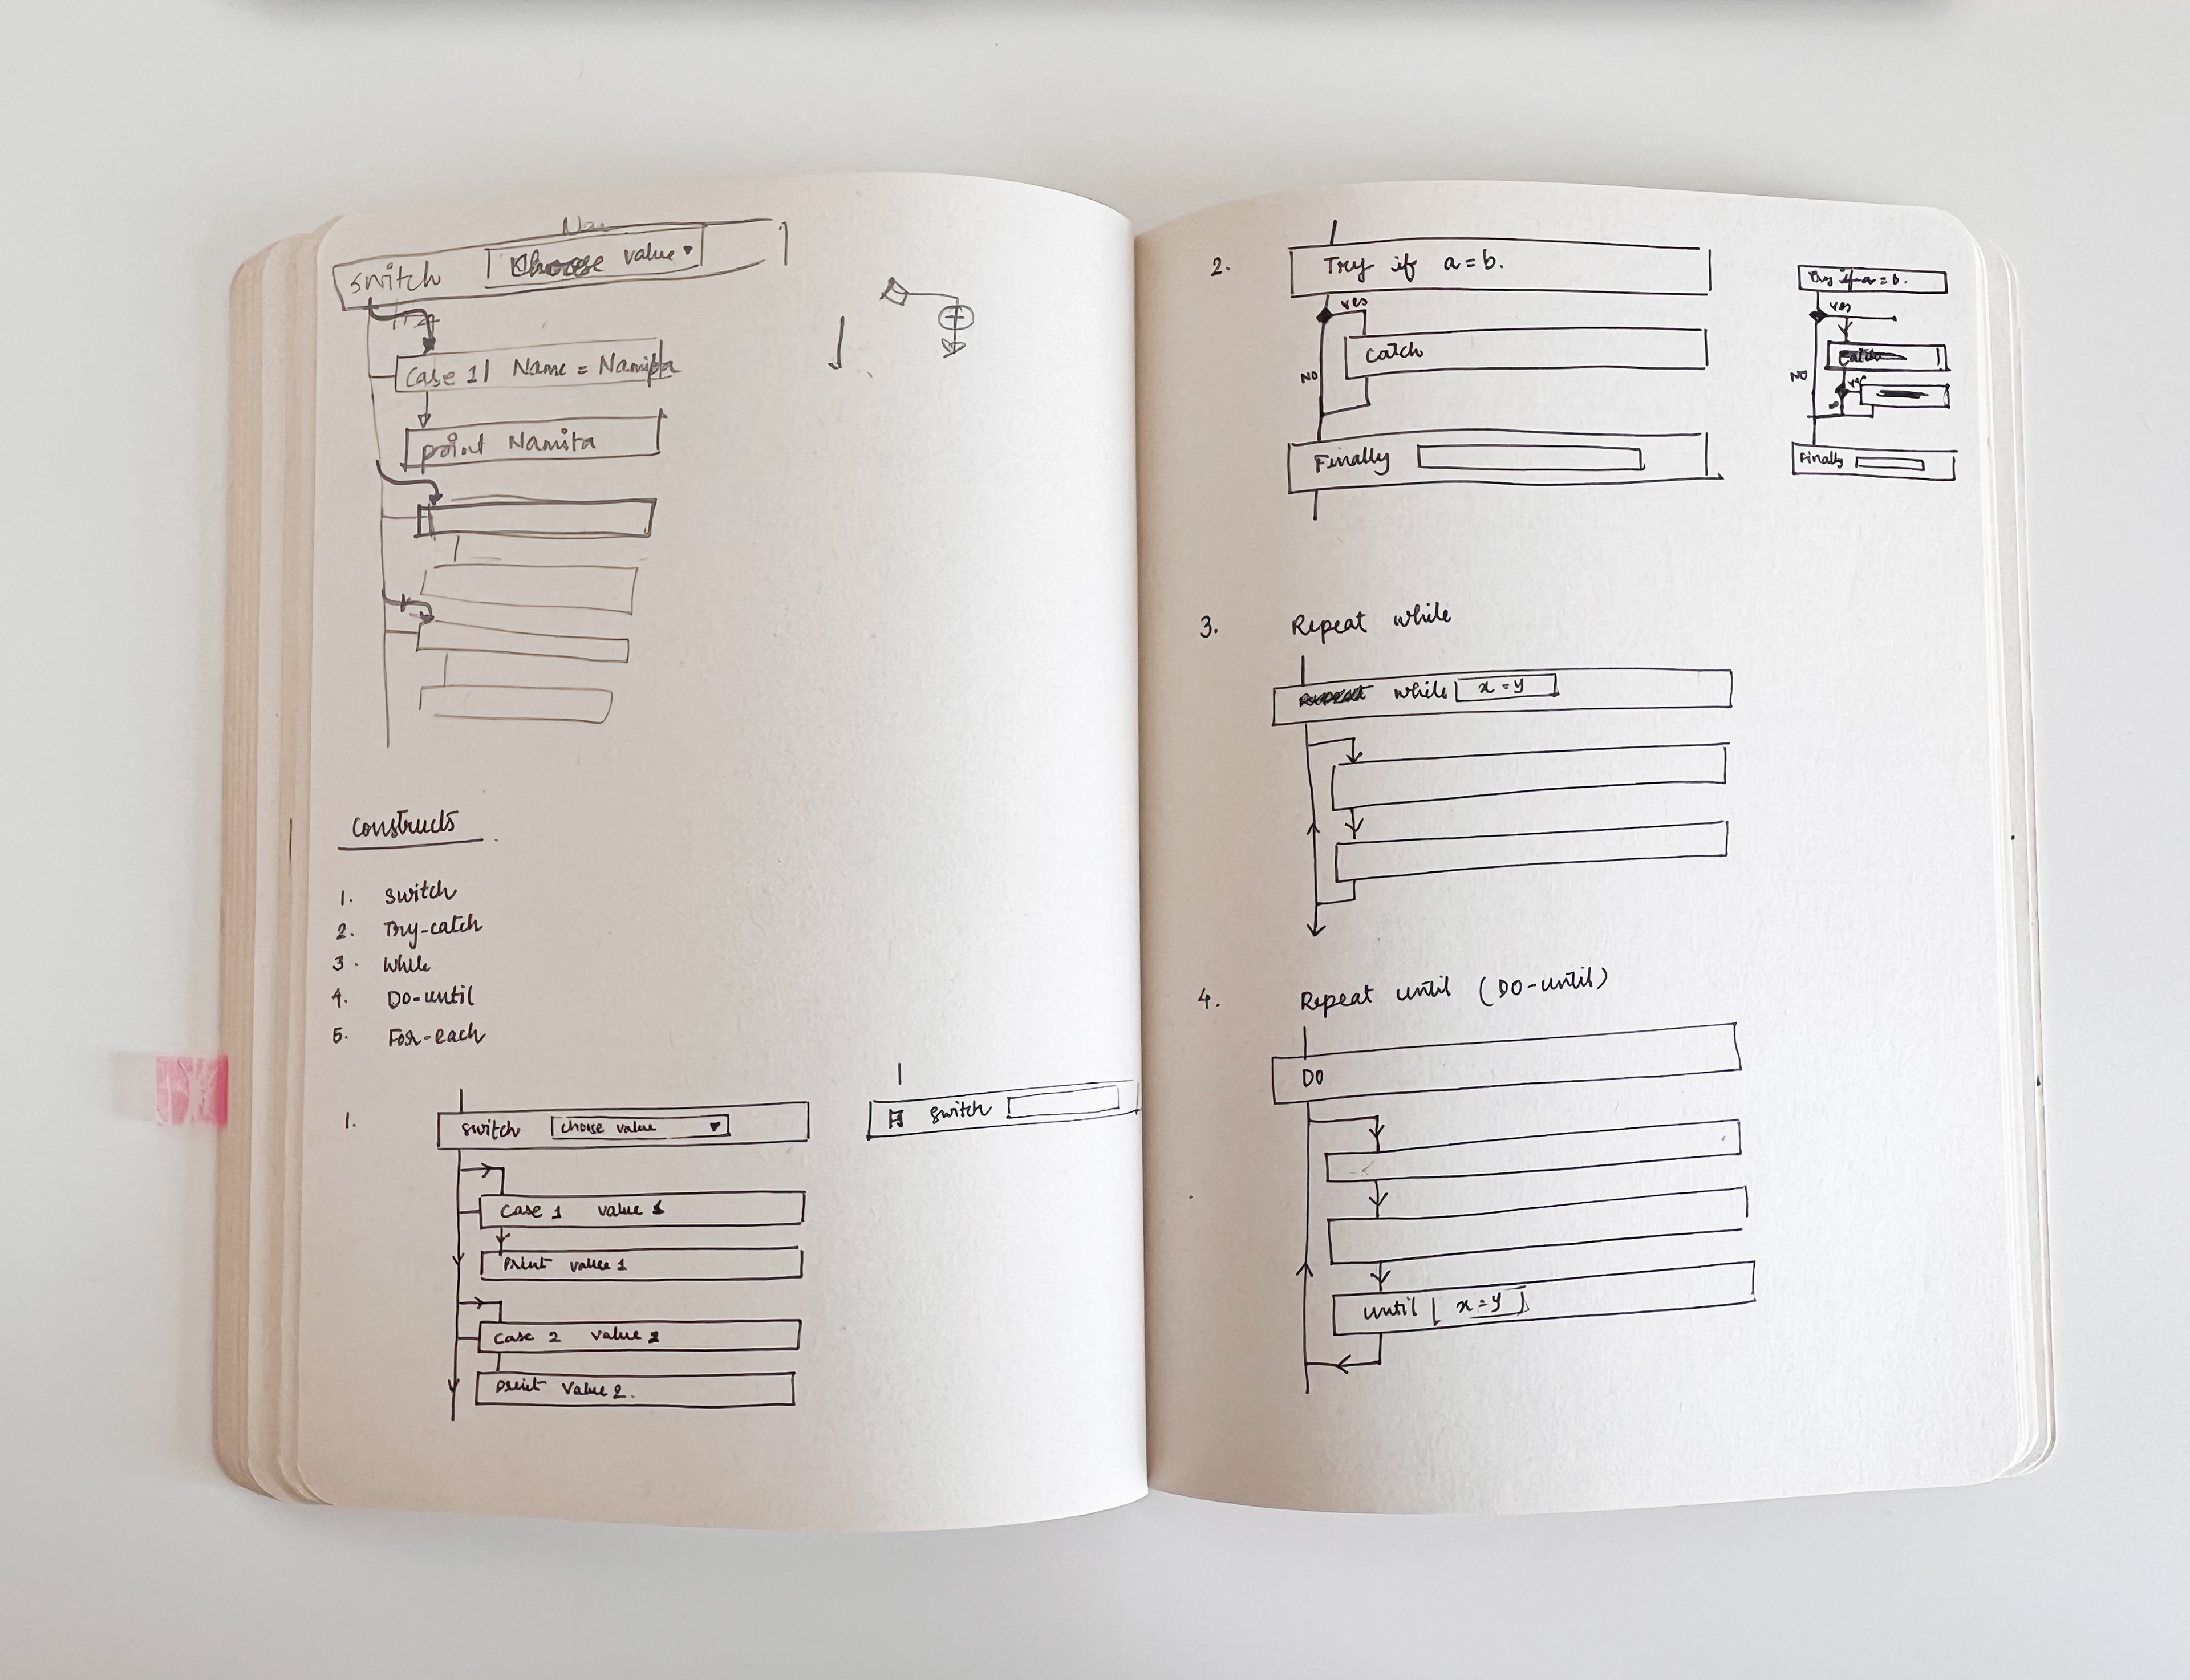 switch Choose value
Case 1 Name = Namita
print Namita
Constructs
1. Switch
2. Try-catch
3. While
4. Do-until
5. For-each
1.
switch choose value
case 1 value 1
Print value 1
case 2 value 2
print value 2.
switch
2.
Try if a = b.
yes
catch
NO
Finally
Try if a = b.
yes
NO
Finally
3. Repeat while
while x = y
4. Repeat until (DO-until)
DO
until x = y